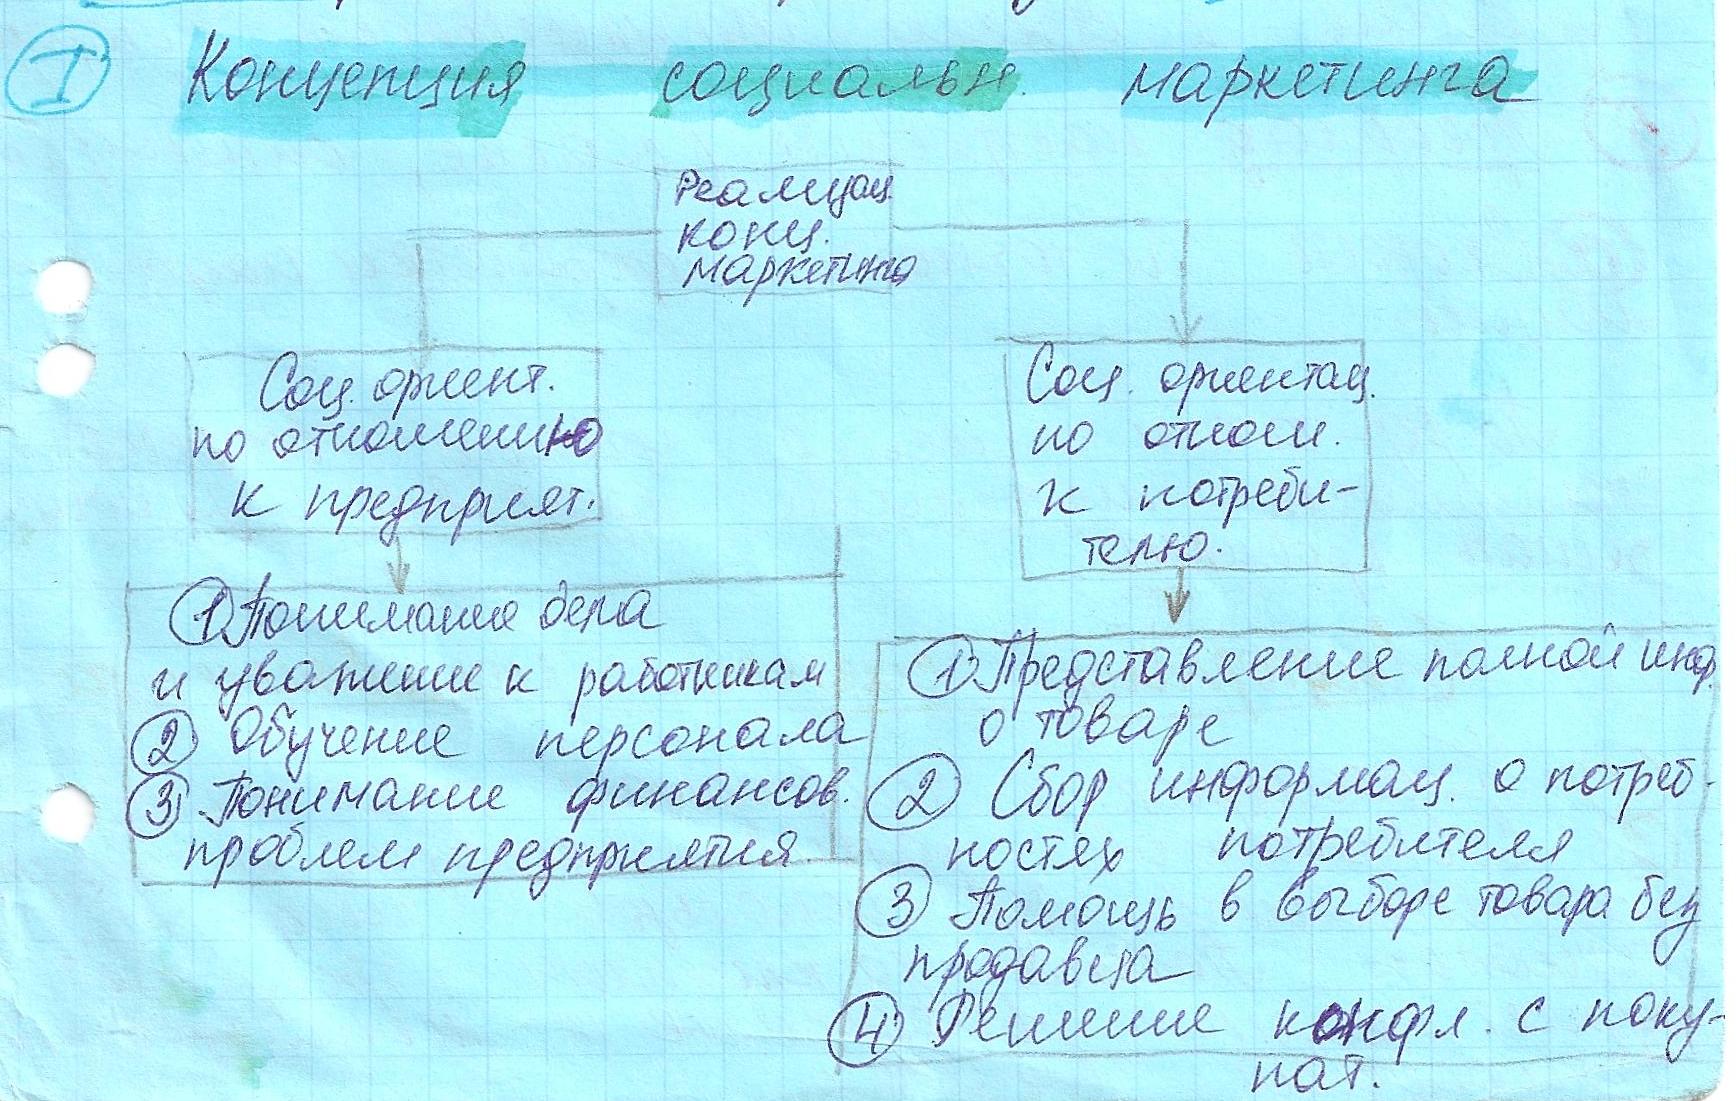 I Концепция социальн. маркетинга
Реализац.
конц.
маркетинга
Соц. ориент.
по отношению
к предприят.
Соц. ориентац.
по отнош.
к потреби-
телю.
1 Понимание дела
и уважение к работникам
2 Обучение персонала
3 Понимание финансов.
проблем предприятия
1 Представление полной инф.
о товаре
2 Сбор информац. о потреб-
ностях потребителя
3 Помощь в выборе товара без
продавца
4 Решение конфл. с поку-
пат.